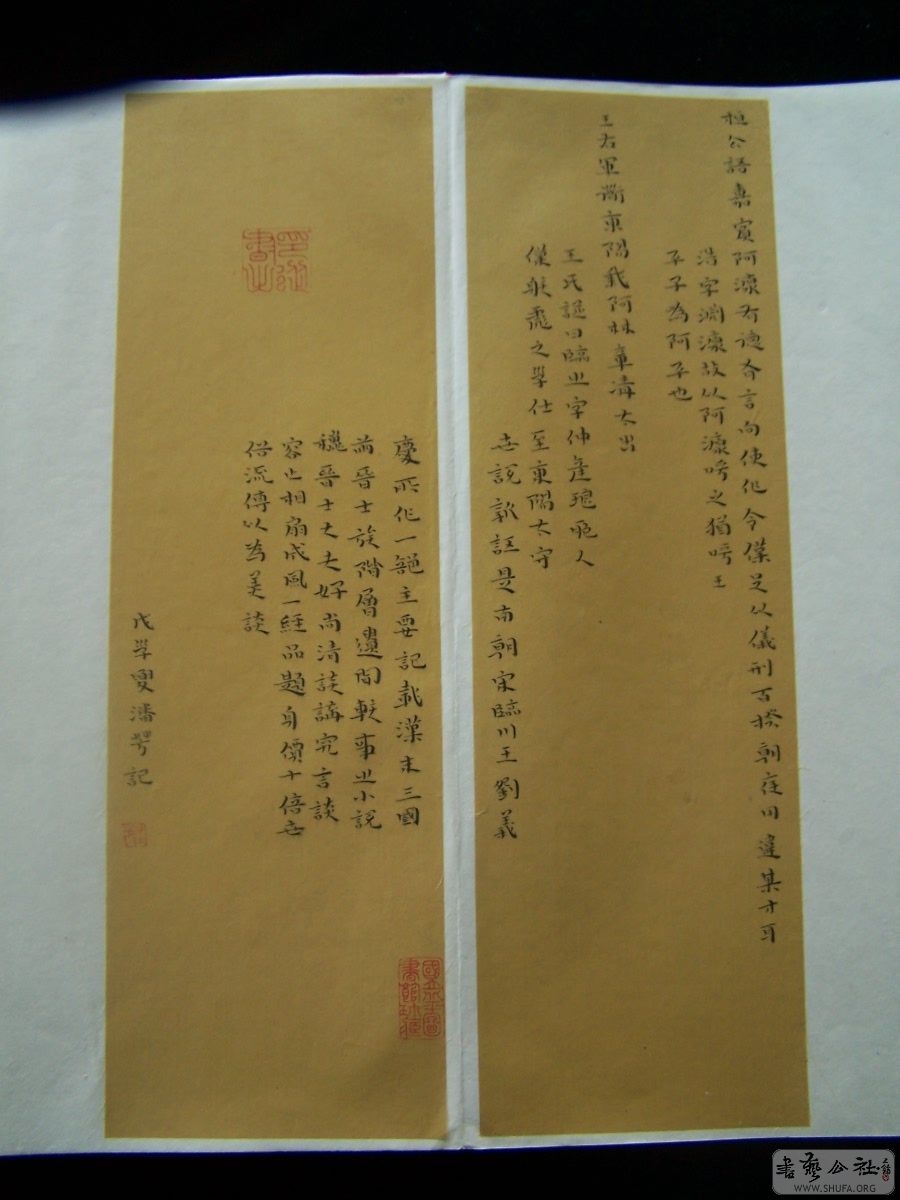 桓公語嘉賓阿源有德有言向使作令僕足以儀刑百揆朝庭用違其才耳
浩字淵源故以阿源呼之猶呼王
平子為阿平也
王右軍齋東陽我阿林章清太出
王氏譜曰臨之字仲產琅邪人
僕射彪之學仕至東陽太守
世說新註是南朝宋臨川王劉義
慶所作一部主要記載漢末三國
前晉士族階層遺聞軼事之小說
魏晉士大夫好尚清談講究言談
容止相扇成風一經品題身價十倍世
俗流傳以為美談
戊學叟潘記
書藝公社
WWW.SHUFA.ORG